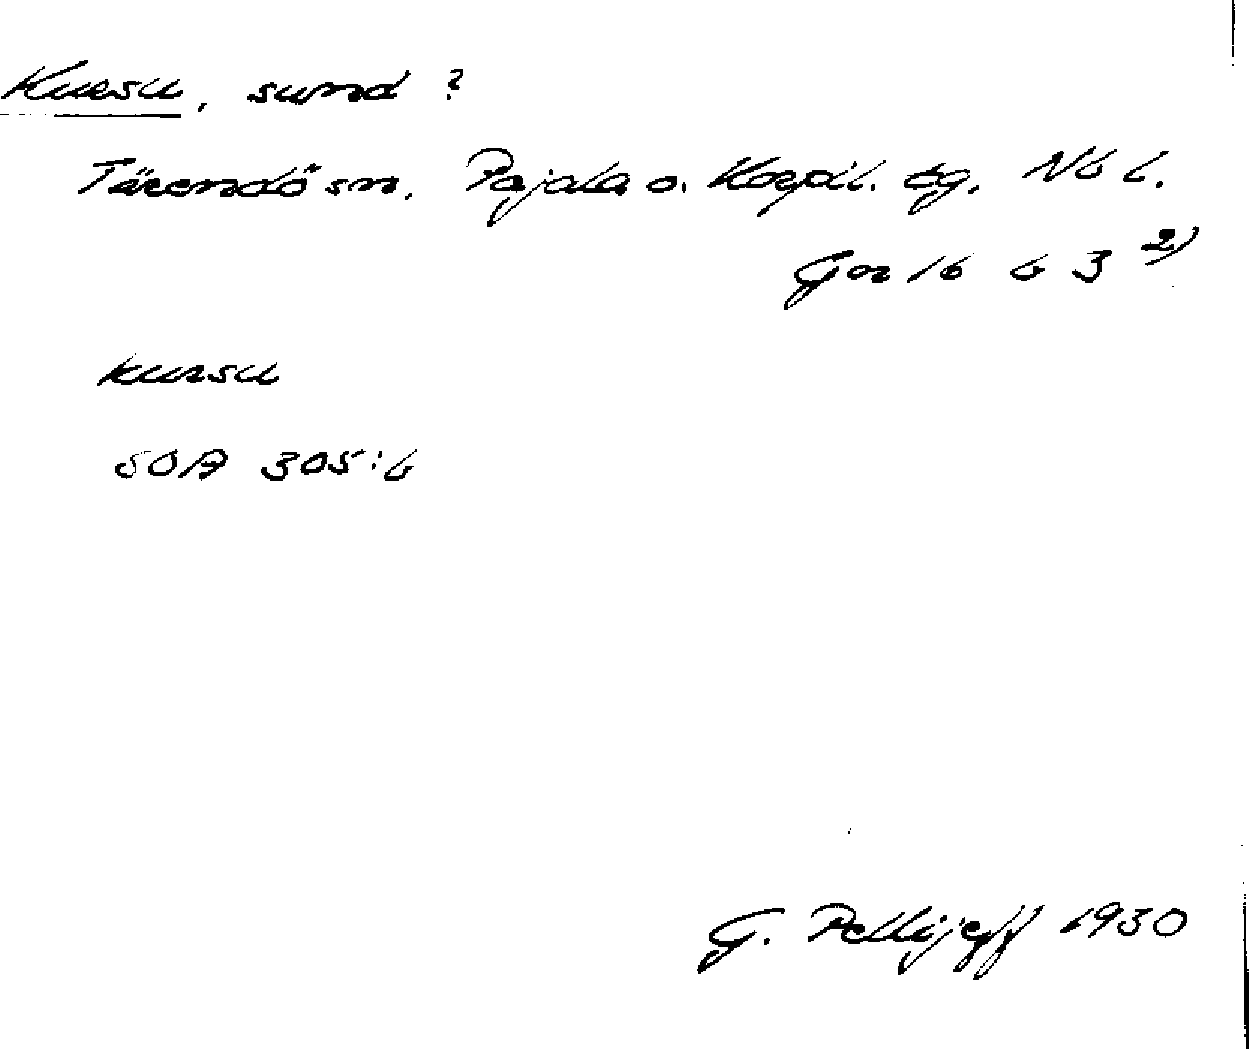 Kursu, sund?
Tärendö sn. Pajala o. Korpil. tg. Nb l.
Gor 16 b 3 2)
kursu
SOA 305:6
G. Pellijeff 1930